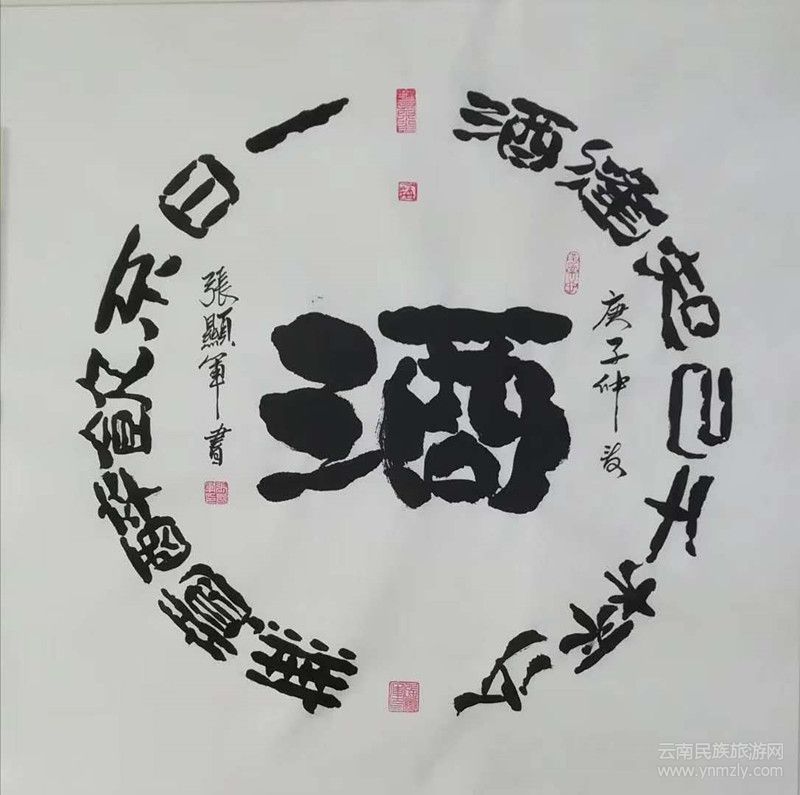 酒逢知己千杯少
一日不飲醉
酒
庚子仲夏
張顯軍書
云南民族旅游网
www.ynmzly.com